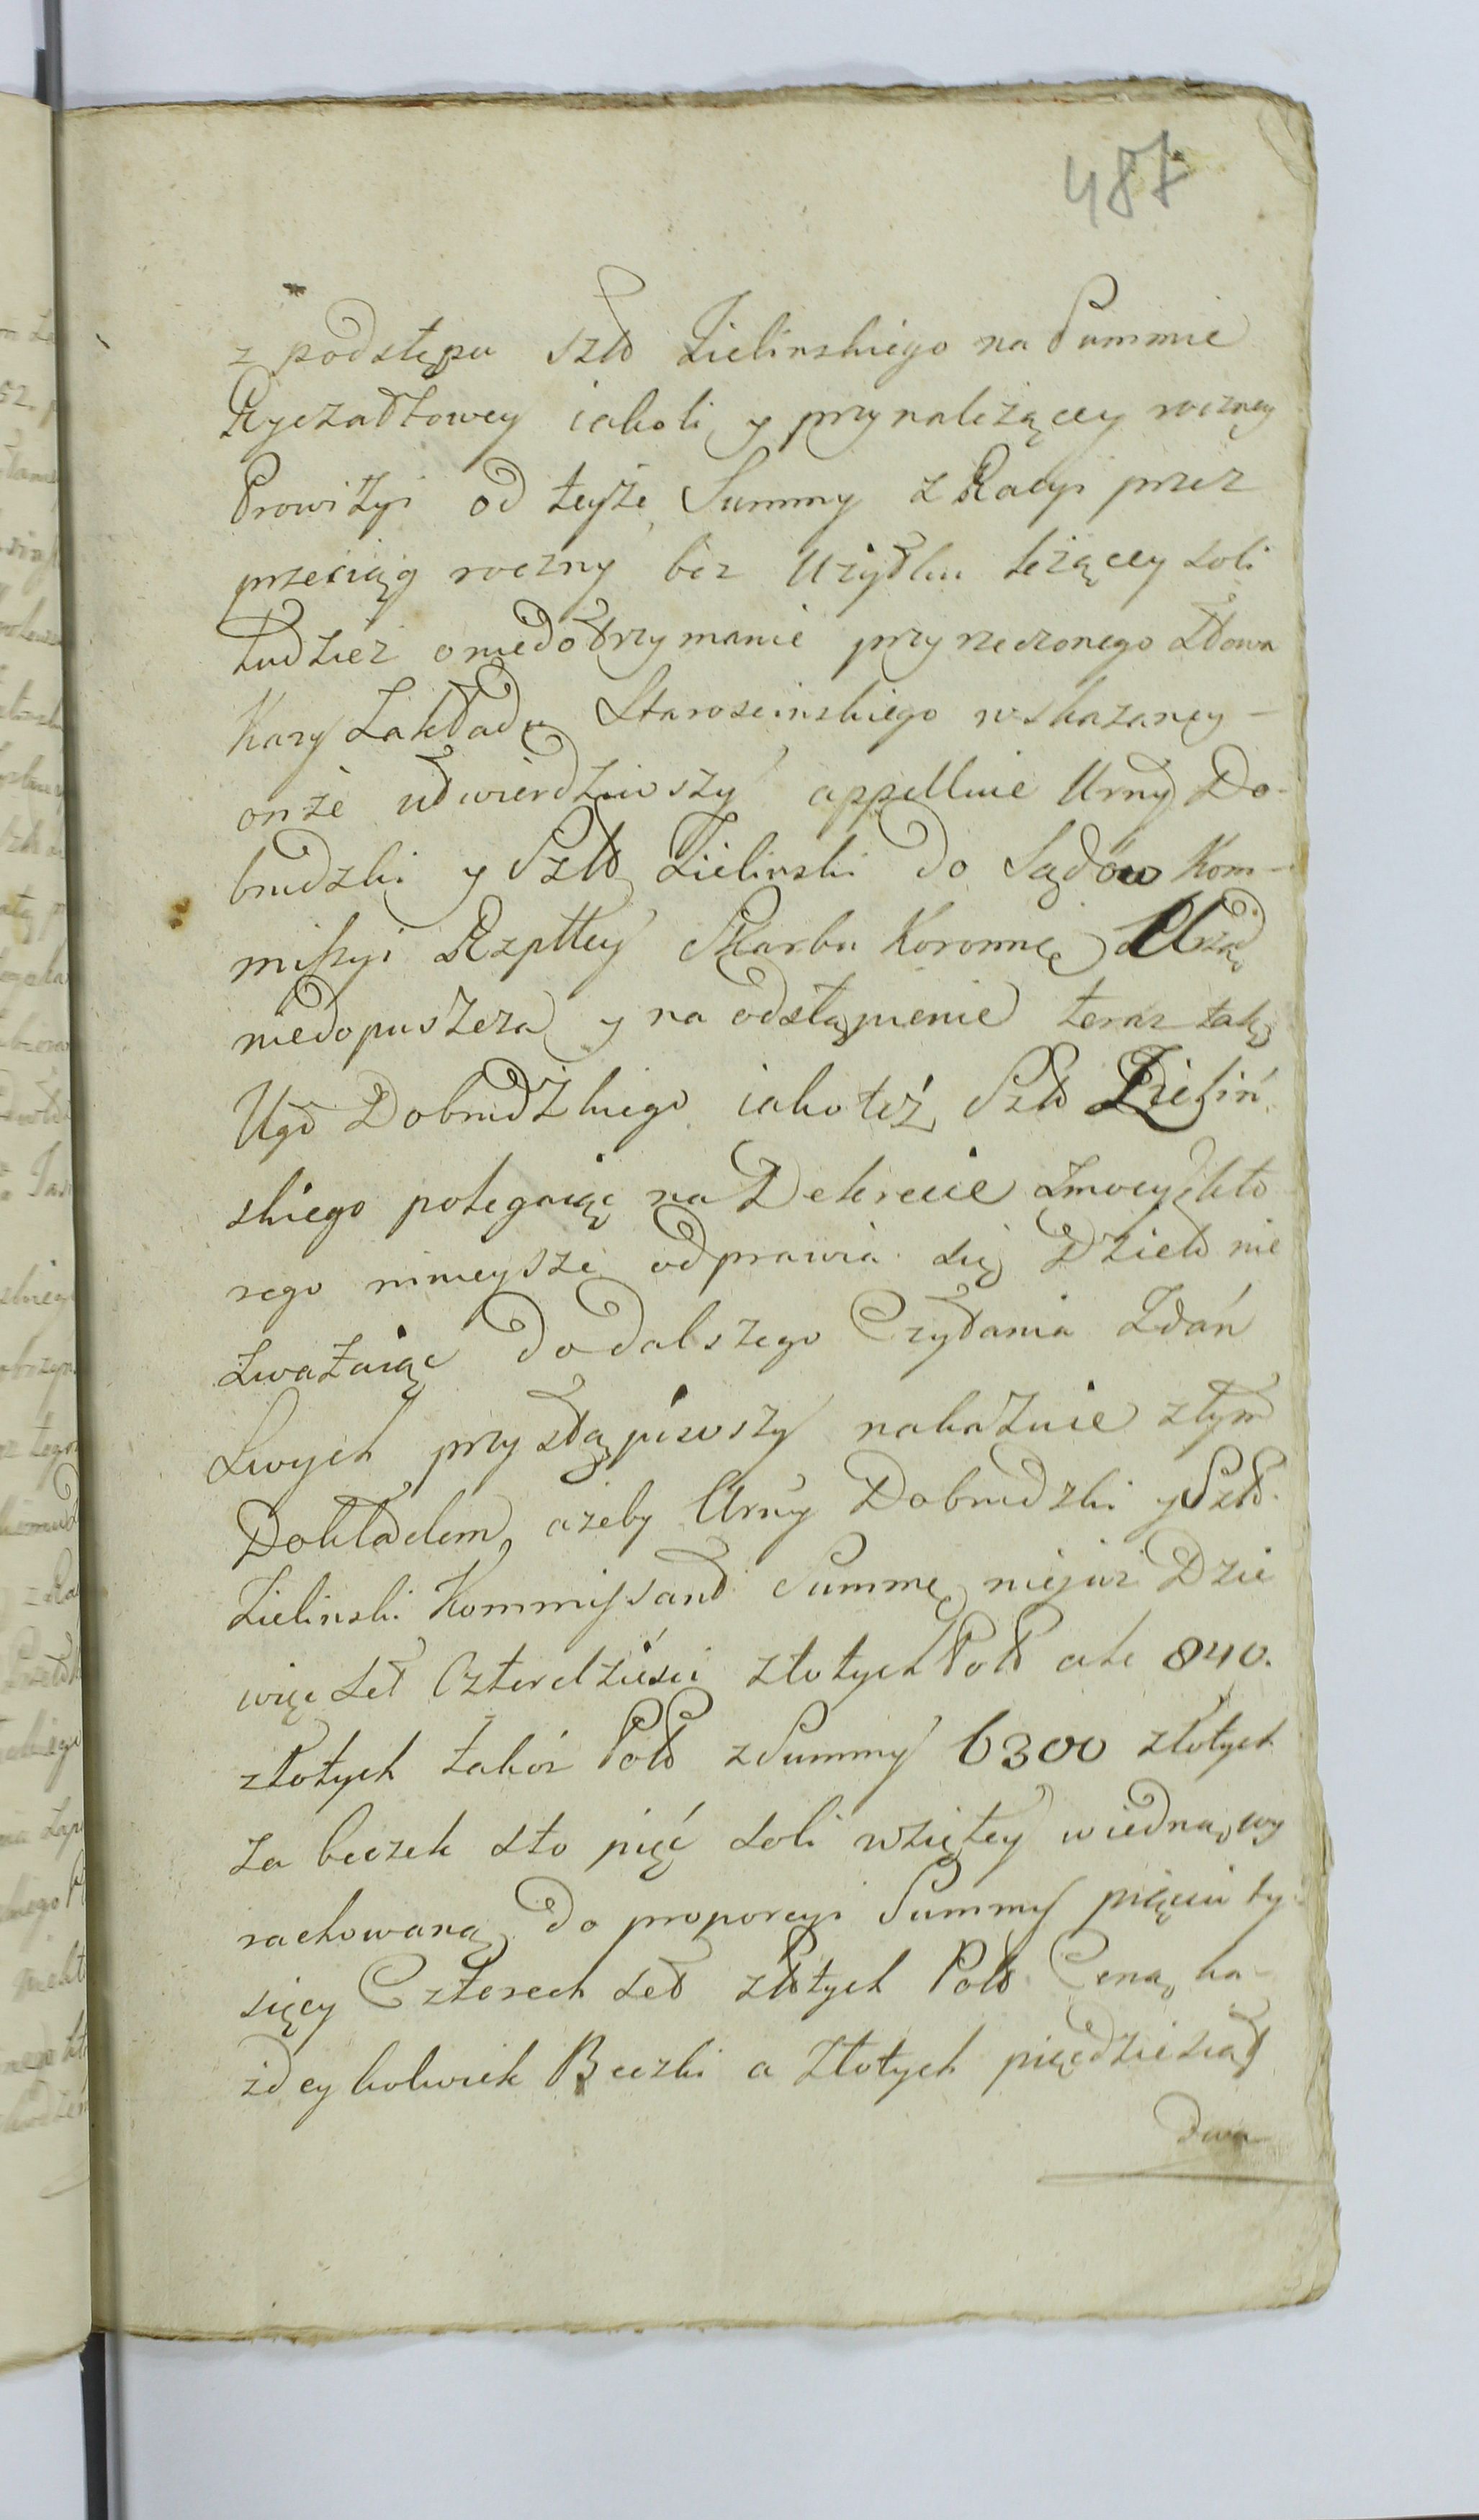 487
z podstępu Szło Zielinskiego na Summie
Ryczałtowey iakoli y przynależącey roczney
Prowizyi od teyże Summy z Racyi przez
przeciąg roczny bez Użytku leżącey soli
tudzież o niedotrzymanie przyrzeczonego Słowa
Kary Zakładu Staroscinskiego wskazaney -
onże utwierdziwszy appelluie Urny Do-
brudzki y Szło Zielinski do Sądow Kom-
missyi Rzpltey Skarbu Koronnę Urząd
niedopuszcza y na odstąpienie teraz tak
Ugo Dobrudzkiego iako też Szło Zieliń
skiego polegaiąc na Dekrecie zmocy kto
rego ninieysze odprawia się Dzieło nie
zważaiąc do dalszego Czytania Zdań
Swych przystąpiwszy nakazuie z tym
Dokładem, ażeby Urny Dobrudzki y Szło.
Zielinski Kommissant Summę nieiuż Dzie
więset Czterdzieści złotych Pol ale 840.
złotych takoż Pol z Summy 6300 złotych
za beczek sto pięć soli wziętey wiedną wy
rachowaną do proporcyi Summy pięciu ty-
sięcy Czterech set złotych Pol Ceną ka-
żdey kolwiek Beczki a Złotych pięcdziesiąt
Dwa